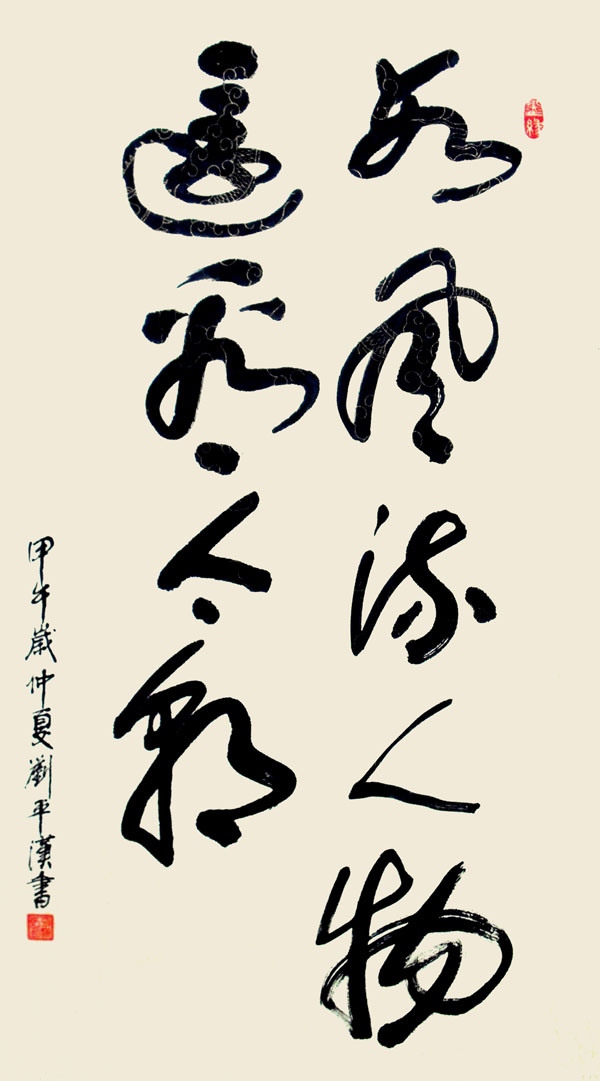 數風流人物
還看今朝
甲午歲仲夏劉平漢書